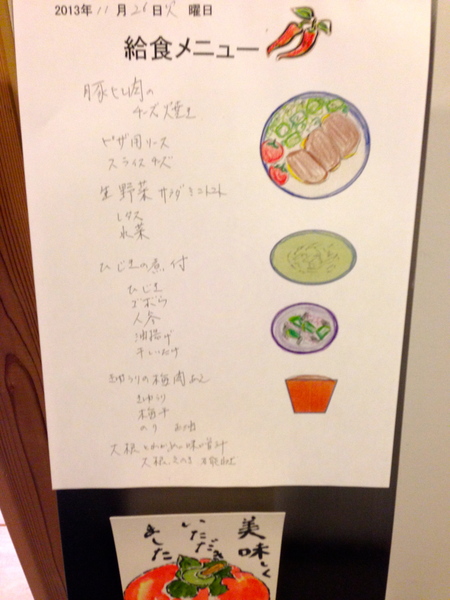 2013年 11月 26日 火 曜日
給食メニュー
豚ヒレ肉の
チーズ焼き
ピザ用ソース
スライスチーズ
生野菜サラダ ミニトマト
レタス
水菜
ひじきの煮付
ひじき
ゴボウ
人参
油揚げ
干しいたけ
きゅうりの梅肉あえ
きゅうり
梅干
のり
大根
味噌汁
大根
美味しく
いただき
ました